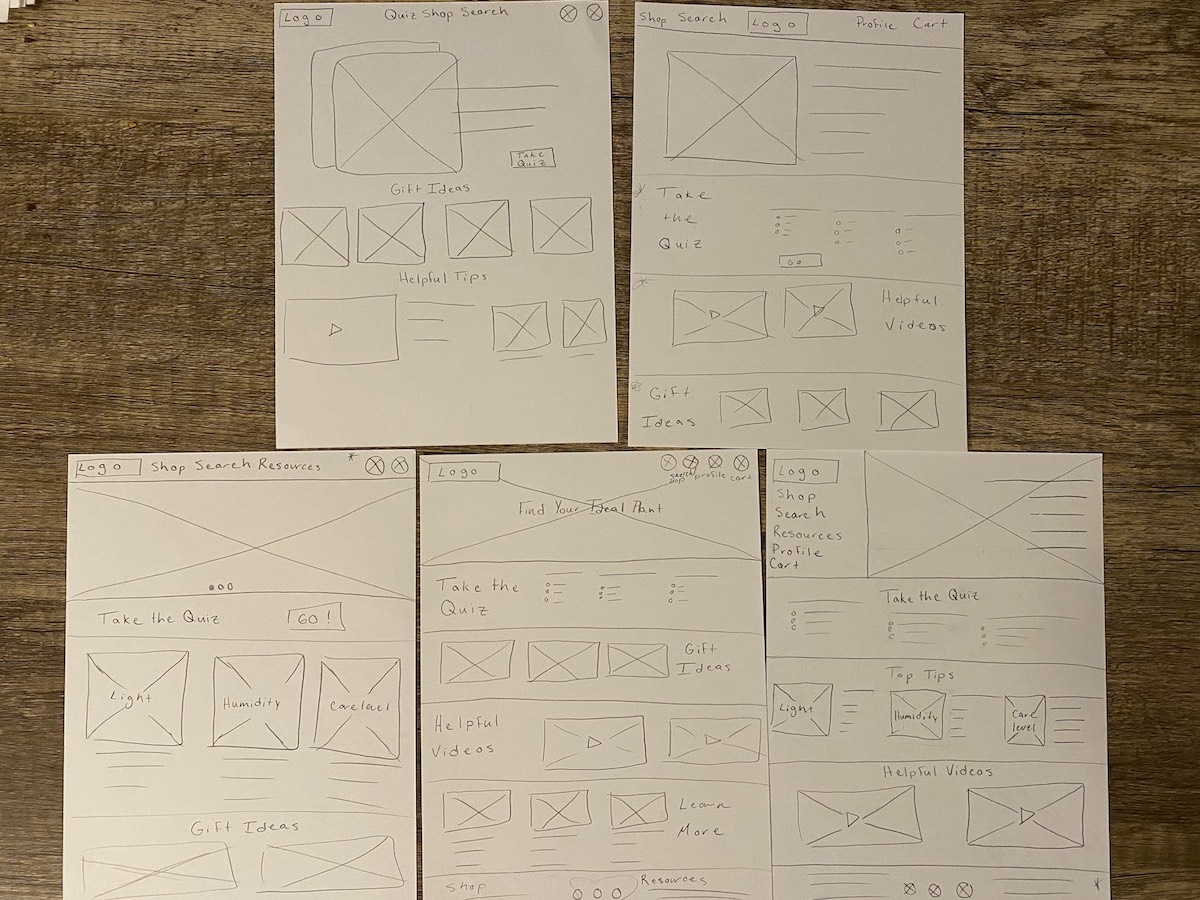 Logo
Quiz Shop Search
Take
Quiz
Gift Ideas
Helpful Tips
Shop Search
Logo
Profile Cart
Take
the
Quiz
GO
Helpful
Videos
Gift
Ideas
Logo
Shop Search Resources
Take the Quiz
GO!
Light
Humidity
Care level
Gift Ideas
Logo
search
shop
profile
cart
Find Your Ideal Plant
Take the
Quiz
Gift
Ideas
Helpful
Videos
Learn
More
Shop
Resources
Logo
Shop
Search
Resources
Profile
Cart
Take the Quiz
Top Tips
Light
Humidity
Care
level
Helpful Videos